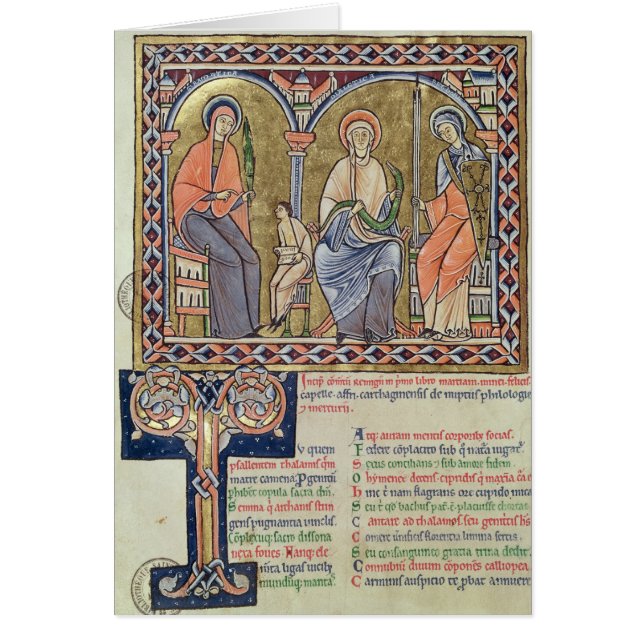 Incip comtū Remigii in pmo libro martiani minei felicis
capelle affri carthaginensis de nuptiis philologie
⁊ mercurii.
u quem
psallentem thalamis qm
matre camena: Pgenitū
phibet copula sacra dm
Semina q archanis strin
gens pugnantia uinclis.
Cōplexuq sacro dissona
nexa foues. Hanq ele
menta ligas uicibȝ
mundūq maritas
Atq auram mentis corporibȝ socias.
Federe cōplacito sub q natura iugat
Sexus concilians ⁊ sub amore fidem.
O hymenee decens cipridis q maxīa cura es
Hinc t nam flagrans ore cupido micat
Seu t qd bachus pat ē placuisse choreas
Cantare ad thalamos seu genitricis hs
Comere uernificis florentia limina sertis.
Seu consanguineo gratia trina dedit.
Connubiū diuum componens calliopea
Carminis auspicio te pbat annuere